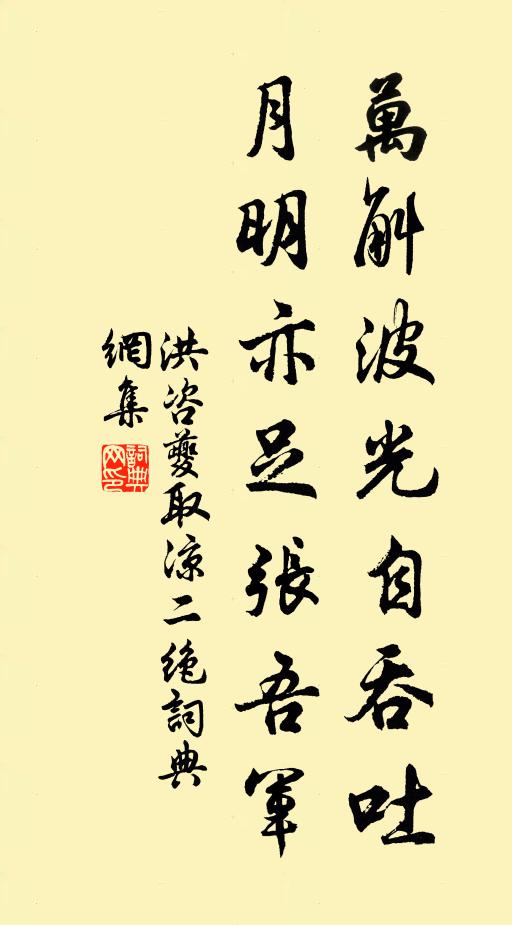 萬斛波光自吞吐
月明亦足張吾軍
洪咨夔取涼二絕詞典
網集
詞典
网印